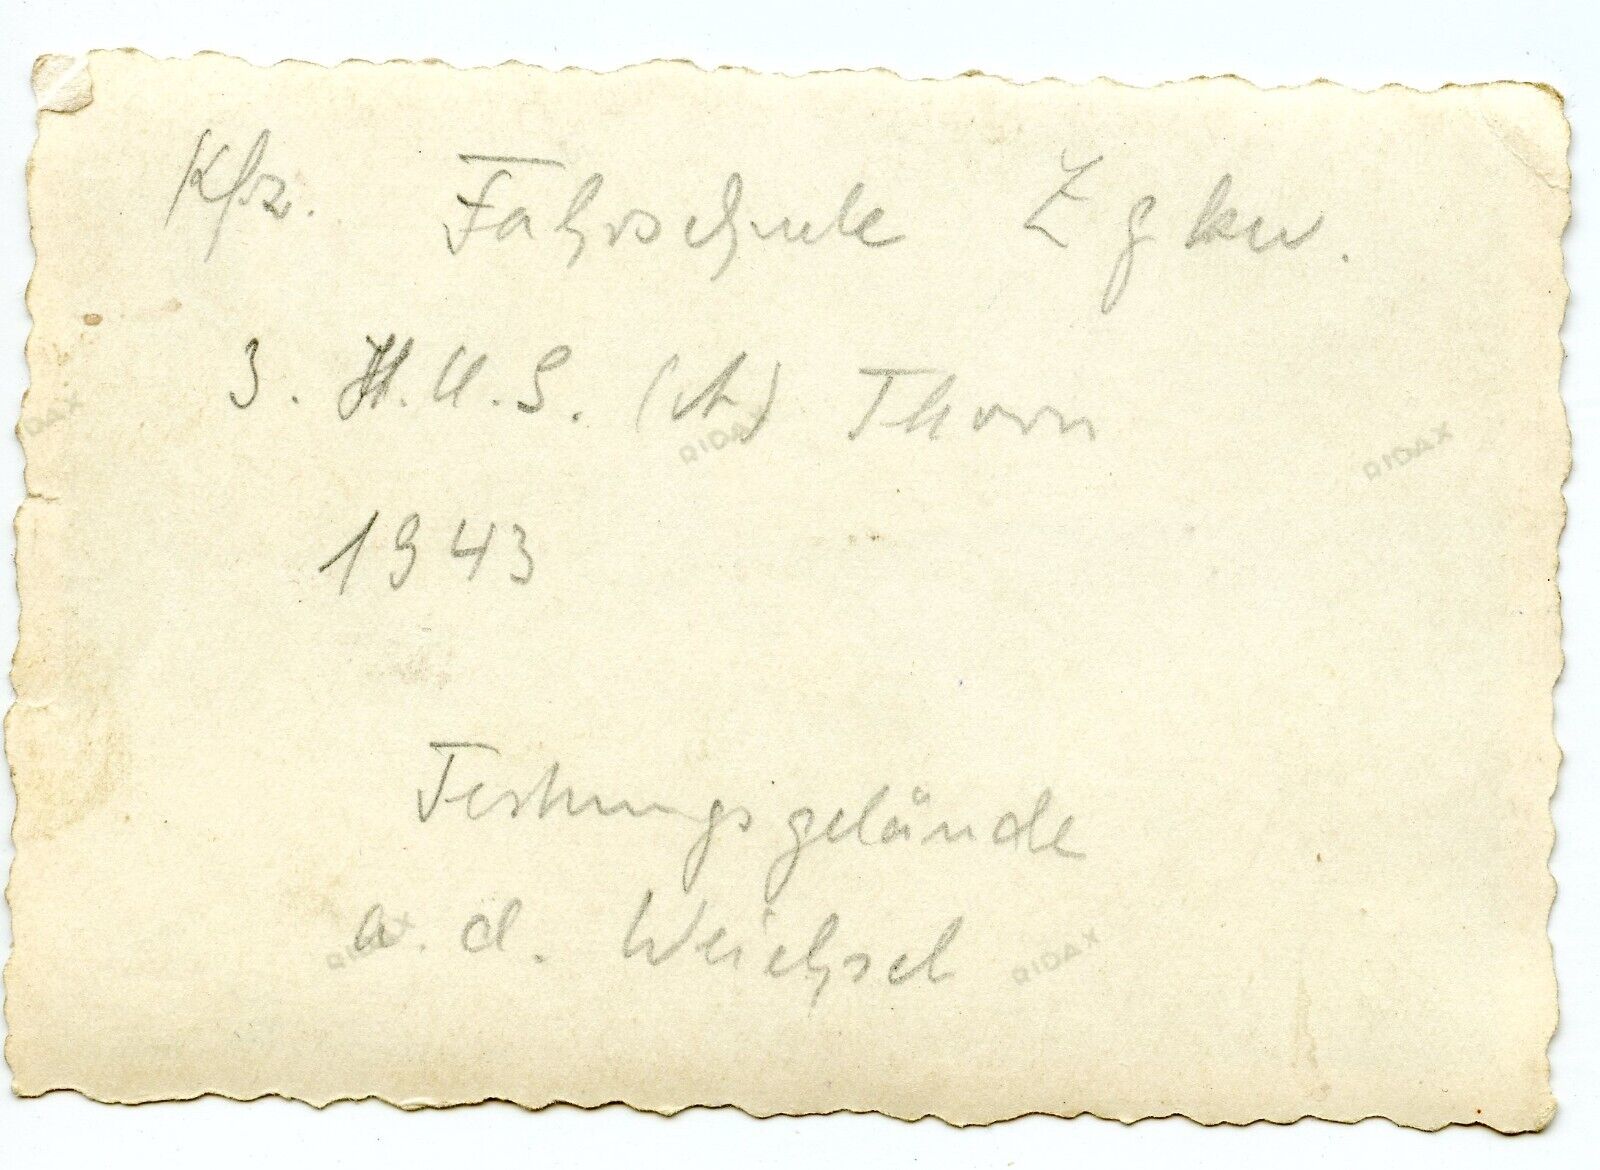 Kfz. Fahrschule Zgkw.
3. H.U.S. (A) Thorn
1943
Festungsgelände
a. d. Weichsel
RIDAX
RIDAX
RIDAX
RIDAX
RIDAX